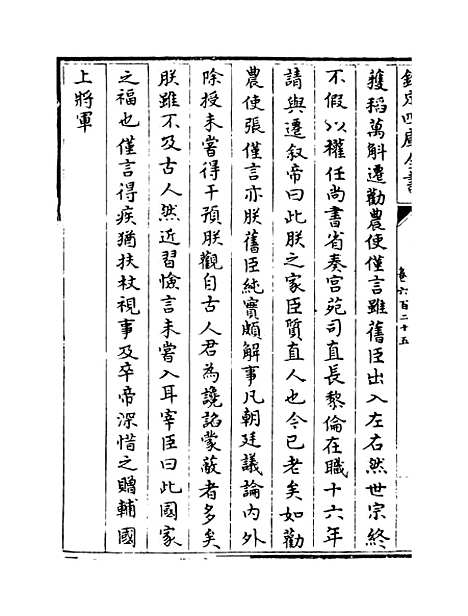 欽定四庫全書
卷六百二十五
穫稻萬斛遷勸農使僅言雖舊臣出入左右然世宗終
不假以權任尚書省奏宮苑司直長黎倫在職十六年
請與遷叙帝曰此朕之家臣質直人也今已老矣如勸
農使張僅言亦朕舊臣純實頗解事凡朝廷議論內外
除授未嘗得干預朕觀自古人君為讒諂蒙蔽者多矣
朕雖不及古人然近習憸言未嘗入耳宰臣曰此國家
之福也僅言得疾猶扶杖視事及卒帝深惜之贈輔國
上將軍